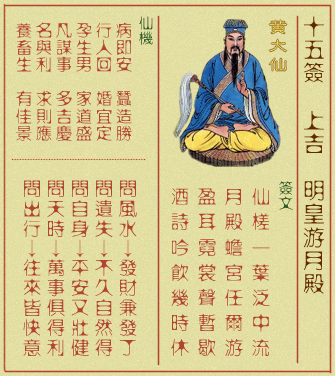 十五簽 上吉 明皇游月殿
黄大仙
簽文
仙槎一葉泛中流
月殿蟾宮任爾游
盈耳霓裳聲暫歇
酒詩吟飲幾時休
仙機
病即安 蠶造勝
行人回 婚宜定
孕生男 家道盛
凡謀事 多吉慶
名與利 求則應
養畜生 有佳景
問風水→發財兼發丁
問遺失→不久自然得
問自身→平安又壯健
問天時→萬事俱得利
問出行→往來皆快意